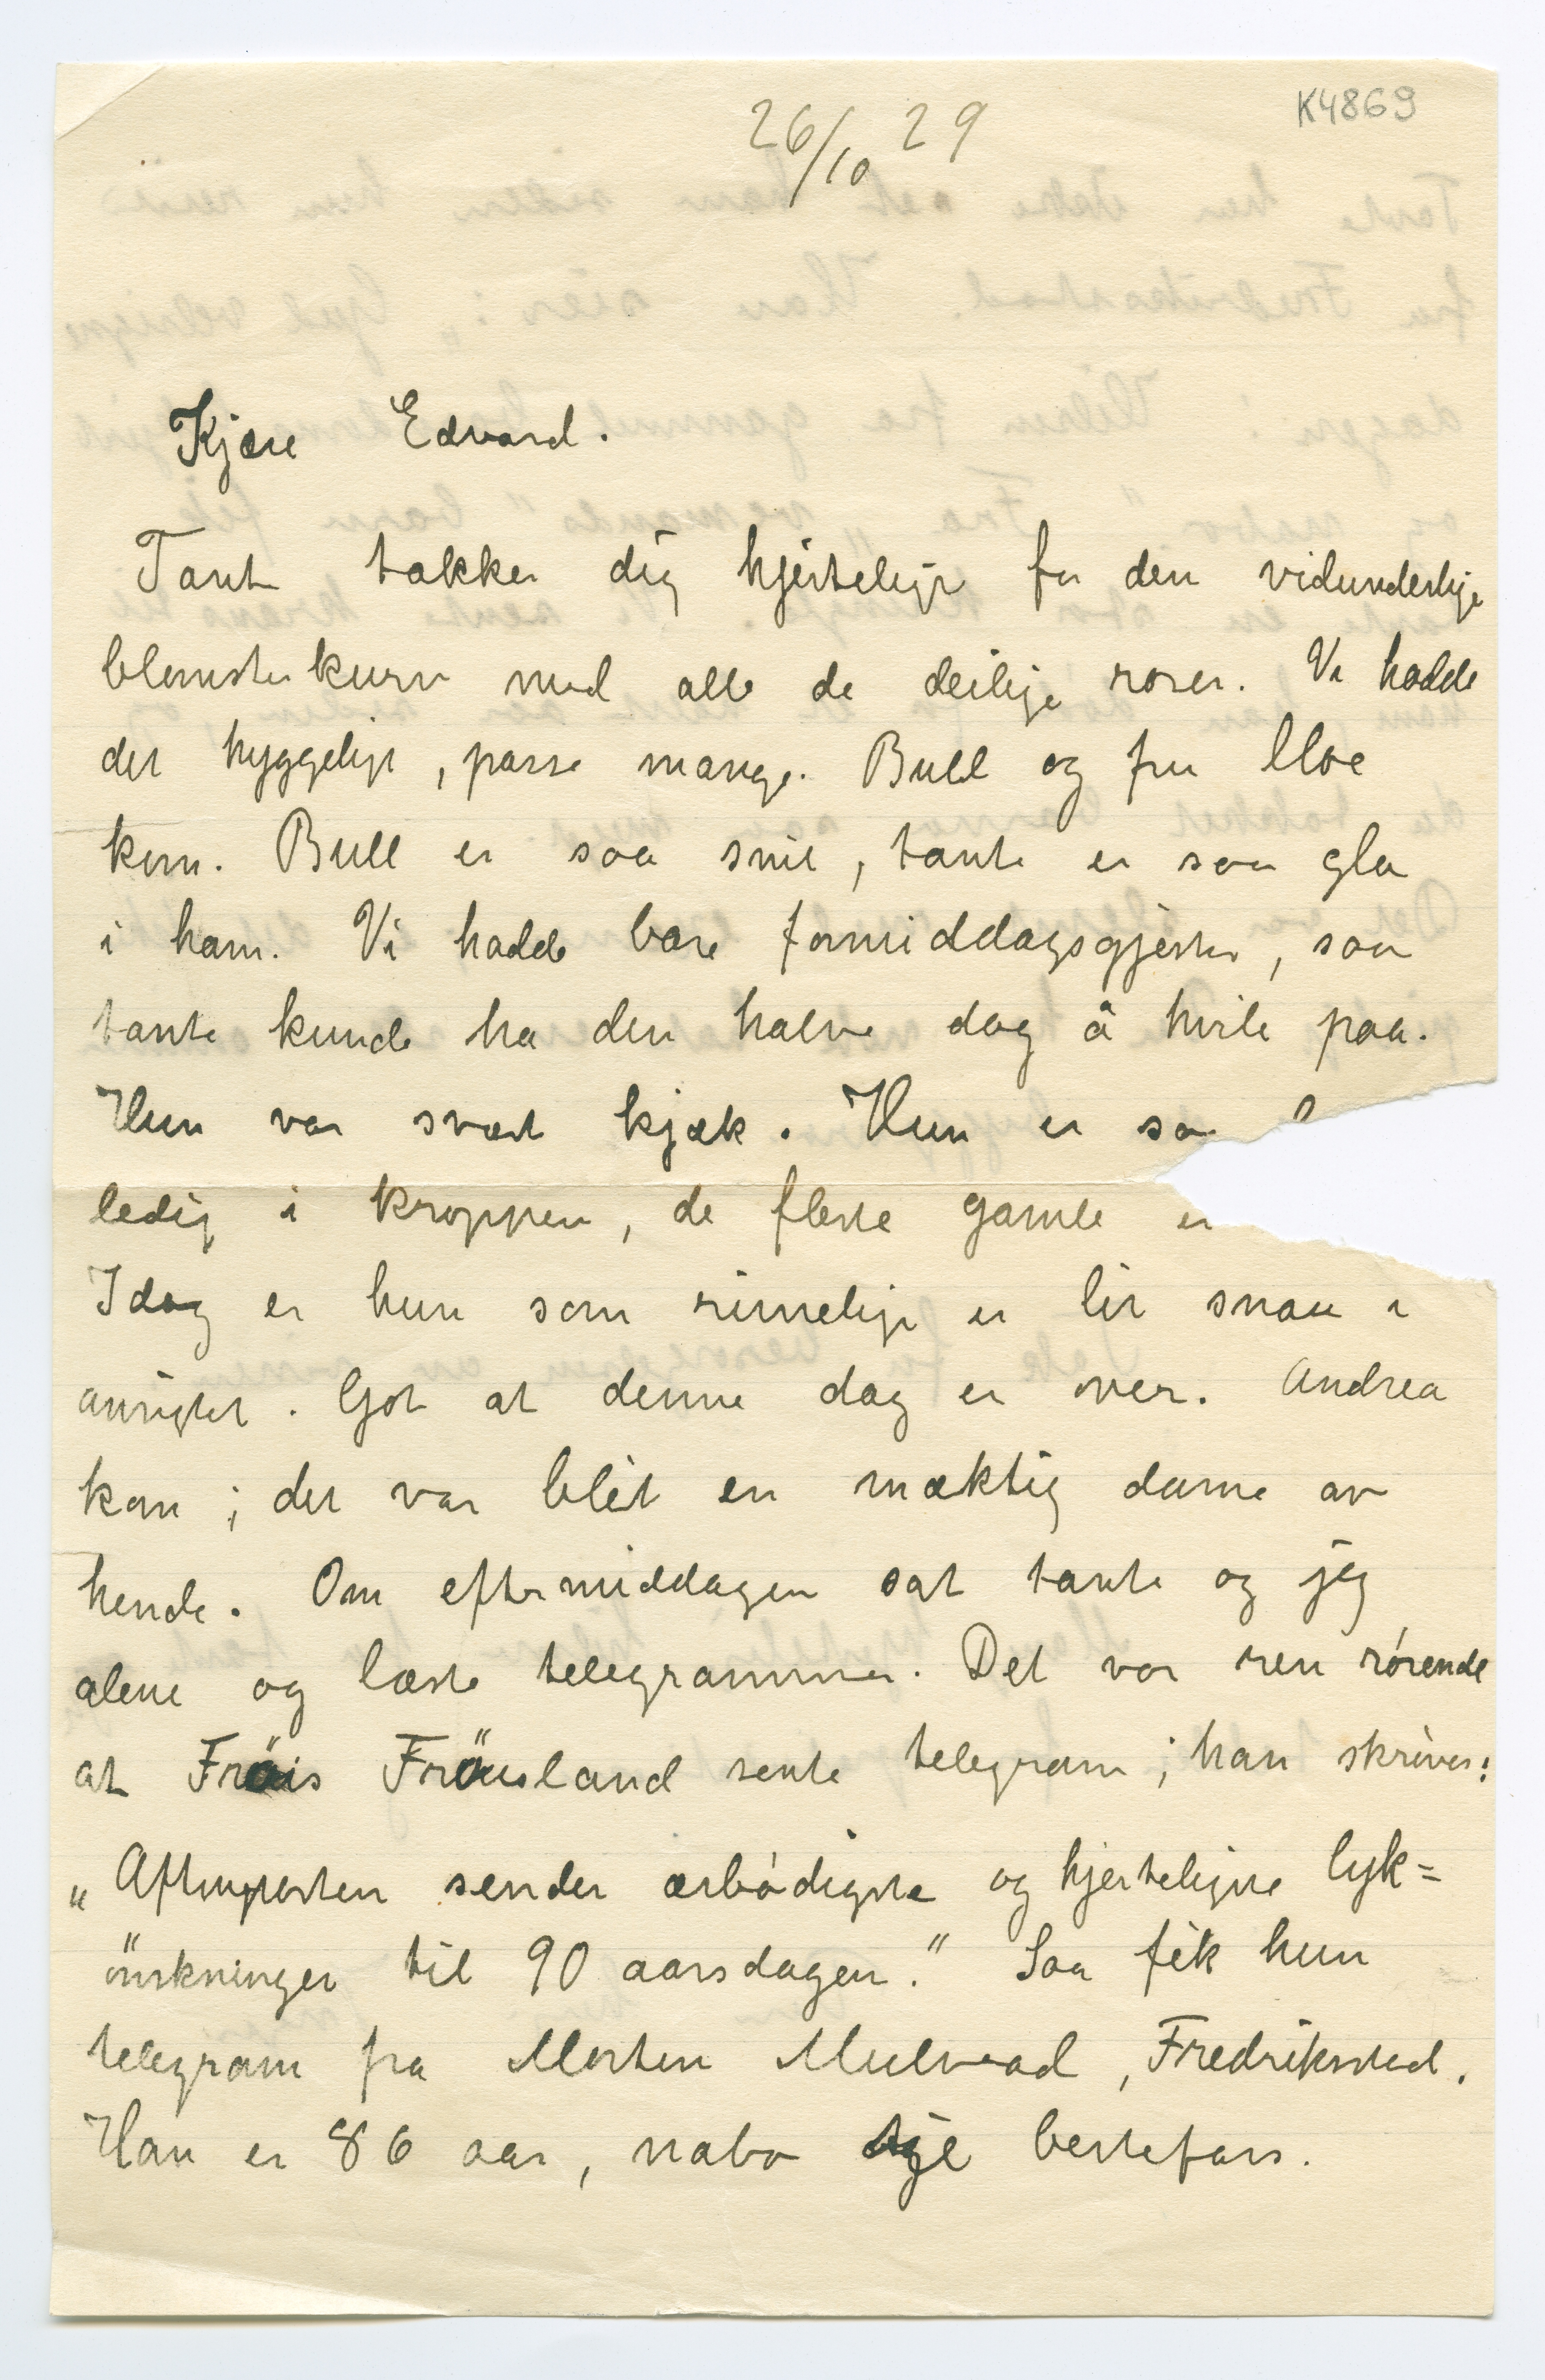 K4869
26/10 29
Kjære Edvard.
Tante takker dig hjerteligt for den vidunderlige
blomsterkurv med alle de deilige roser. Vi hadde
det hyggeligt, passe mange. Bull og fru Moe
kom. Bull er saa snil, tante er saa gla
i ham. Vi hadde bare formiddagsgjester, saa
tante kunde ha den halve dag å hvile paa.
Hun var svært kjæk. Hun er sa
ledig i kroppen, de fleste gamle er
Idag er hun som rimeligt er litt snau i
ansigtet. Got at denne dag er over. Andrea
kom; det var blit en mæktig dame av
hende. Om eftermiddagen sat tante og jeg
alene og læste telegrammer. Det var ren rørende
at Fröis Fröisland sente telegram; han skriver:
„Aftenposten sender ærbødigste og hjerteligste lyk=
önskninger til 90 aarsdagen." Saa fik hun
telegram fra Morten Mulvad, Fredrikstad.
Han er 86 aar, nabo til bestefars.